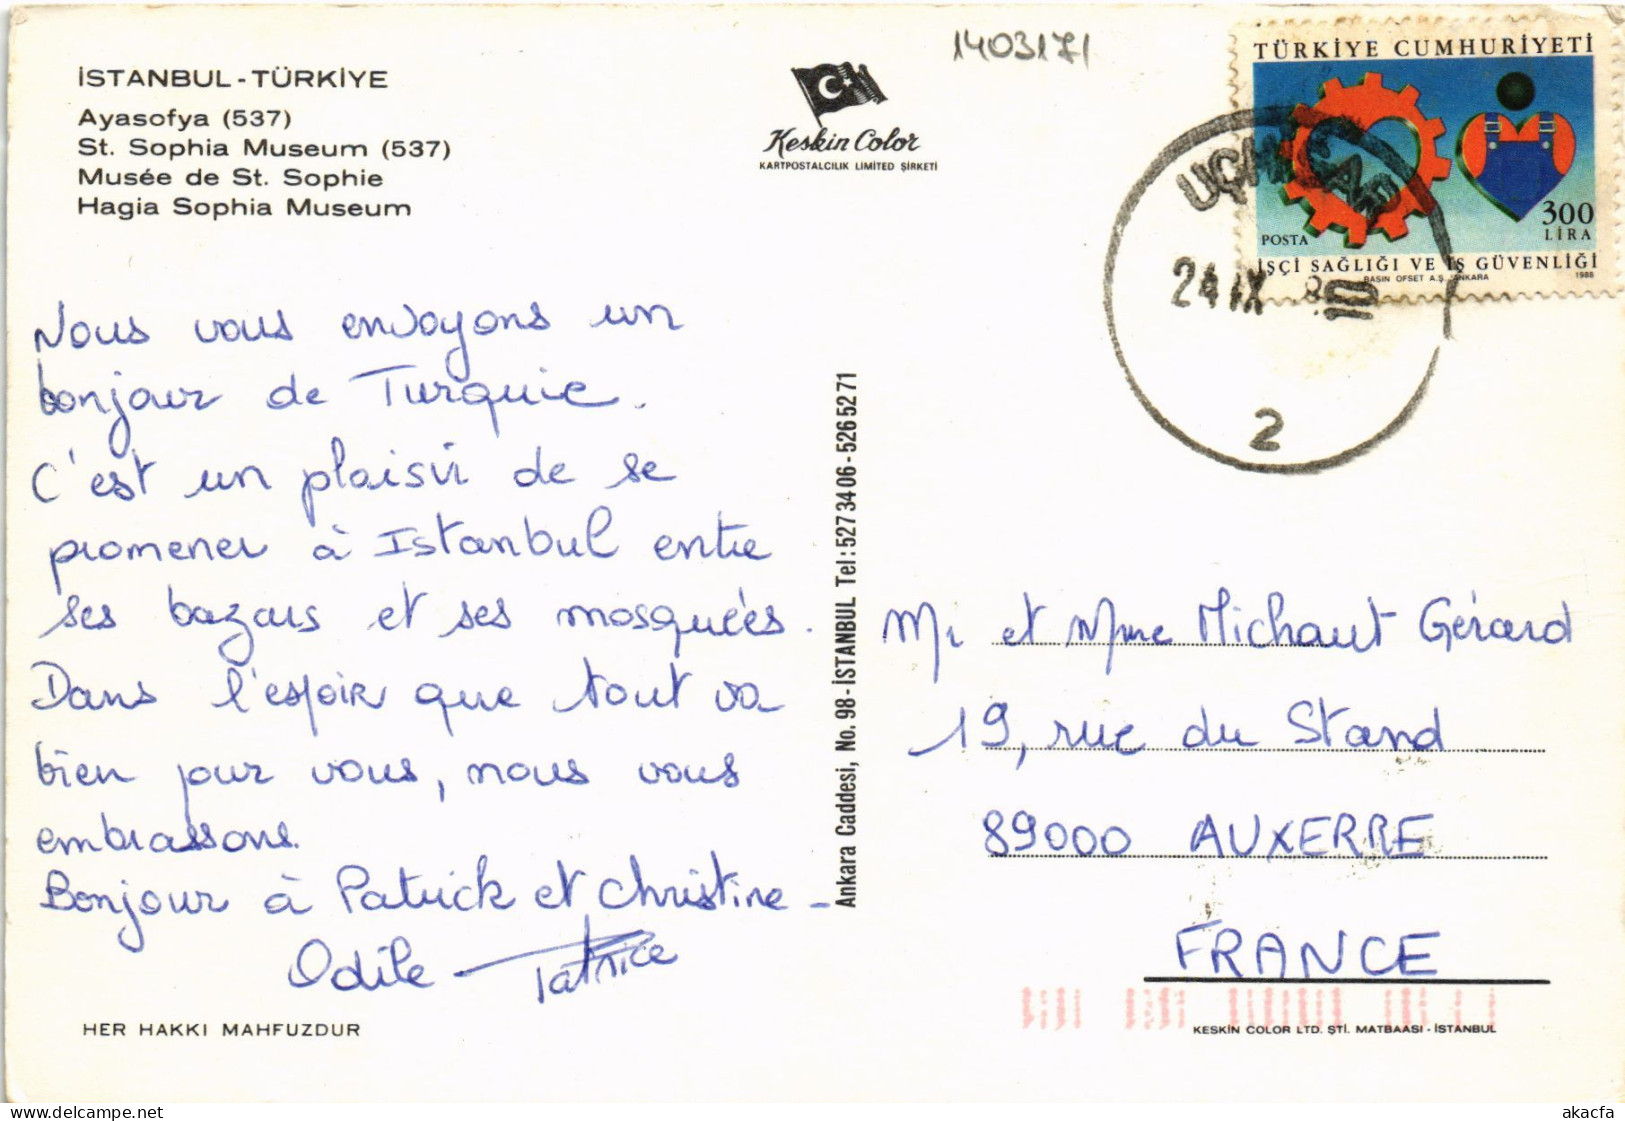 İSTANBUL - TÜRKİYE
Ayasofya (537)
St. Sophia Museum (537)
Musée de St. Sophie
Hagia Sophia Museum
Keskin Color
KARTPOSTALCILIK LIMITED ŞİRKETİ
1403171
TÜRKİYE CUMHURİYETİ
300
LİRA
POSTA
İŞÇİ SAĞLIĞI VE İŞ GÜVENLİĞİ
BASIN OFSET A.Ş. ANKARA
1988
24 IX
10
2
Nous vous envoyons un
bonjour de Turquie.
C'est un plaisir de se
promener à Istanbul entre
ses bazars et ses mosquées.
Dans l'espoir que tout va
bien pour vous, nous vous
embrassons.
Bonjour à Patrick et Christine -
Odile - Patrice
HER HAKKI MAHFUZDUR
Ankara Caddesi, No. 98 - İSTANBUL Tel : 527 34 06 - 526 52 71
Mr et Mme Michaut Gérard
19, rue du Stand
89000 AUXERRE
FRANCE
KESKİN COLOR LTD. ŞTİ. MATBAASI - İSTANBUL
akacfa